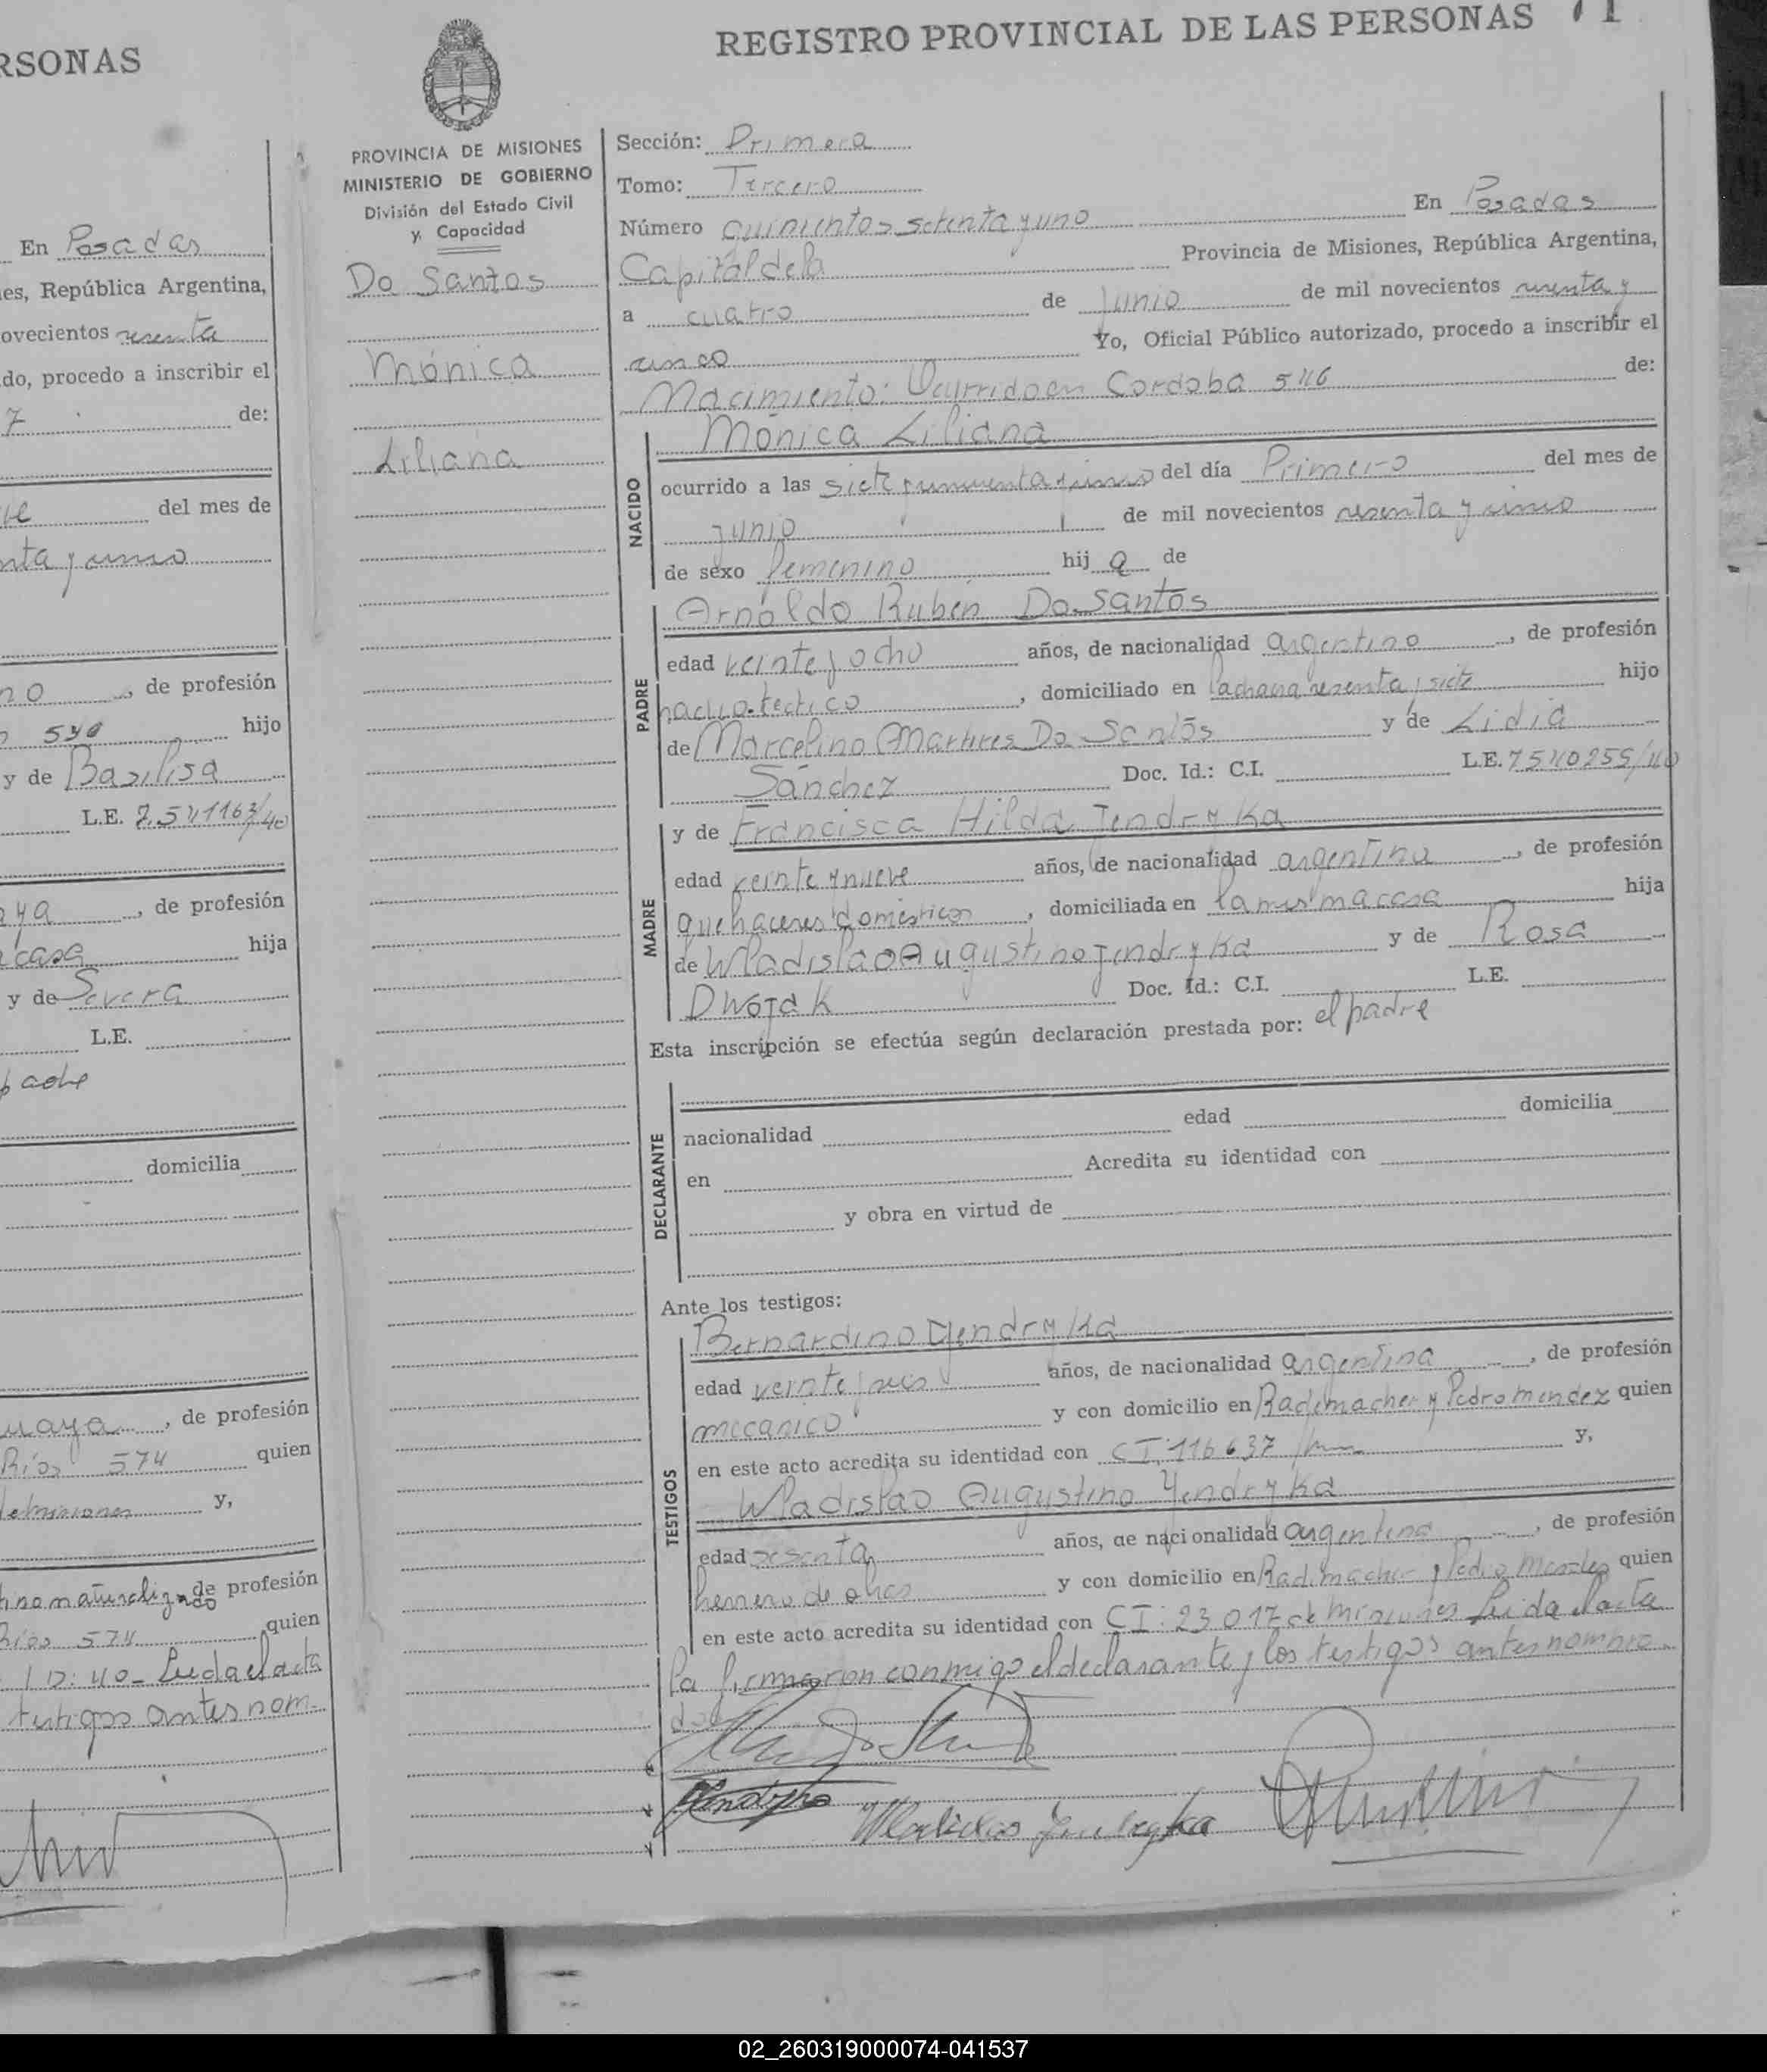 RSONAS
En Posadas
es, República Argentina,
ovecientos sesenta
do, procedo a inscribir el
7 de:
del mes de
nta y cinco
no, de profesión
540 hijo
y de Basilisa
L.E. 7.541163/40
aya, de profesión
casa hija
y de Severa
L.E.
padre
domicilia
uaya, de profesión
Ríos 574 quien
de misiones y,
tino naturalizado de profesión
Ríos 574 quien
I D: 40_ Leida el acta
testigos antes nom-
REGISTRO PROVINCIAL DE LAS PERSONAS 71
PROVINCIA DE MISIONES
MINISTERIO DE GOBIERNO
División del Estado Civil
y, Capacidad
Do Santos
Mónica
Liliana
Sección: Primera
Tomo: Tercero
Número quinientos setenta y uno En Posadas
Capital de la Provincia de Misiones, República Argentina,
a cuatro de Junio de mil novecientos sesenta y
cinco Yo, Oficial Público autorizado, procedo a inscribir el
Nacimiento: Ocurrido en Cordoba 546 de:
Mónica Liliana
NACIDO
ocurrido a las siete y cincuenta y cinco del día Primero del mes de
junio de mil novecientos sesenta y cinco
de sexo femenino hij a de
PADRE
Arnoldo Ruben Do Santos
edad veinte y ocho años, de nacionalidad argentino, de profesión
radiotectico, domiciliado en Lachana sesenta y siete hijo
de Marcelino Martires Do Santos y de Lidia
Sánchez Doc. Id.: C.I. L.E. 7540255/40
MADRE
y de Francisca Hilda Jendryka
edad veinte y nueve años, de nacionalidad argentina, de profesión
quehaceres domésticos, domiciliada en la misma casa hija
de Wladislao Augustino Jendryka y de Rosa
Dwojak Doc. Id.: C.I. L.E.
Esta inscripción se efectúa según declaración prestada por: el padre
DECLARANTE
nacionalidad edad domicilia
en Acredita su identidad con
y obra en virtud de
Ante los testigos:
TESTIGOS
Bernardino Yendryka
edad veinte y seis años, de nacionalidad argentina, de profesión
mecanico y con domicilio en Rademacher y Pedro Mendez quien
en este acto acredita su identidad con CI. 116637 y,
Wladislao Augustino Yendryka
edad sesenta años, de nacionalidad argentino, de profesión
herrero de obras y con domicilio en Rademacher y Pedro Mendez quien
en este acto acredita su identidad con CI: 23017 de Misiones Leida el acta
la firmaron conmigo el declarante y los testigos antes nombra-
dos
Wladislao Jendryka
02_260319000074-041537